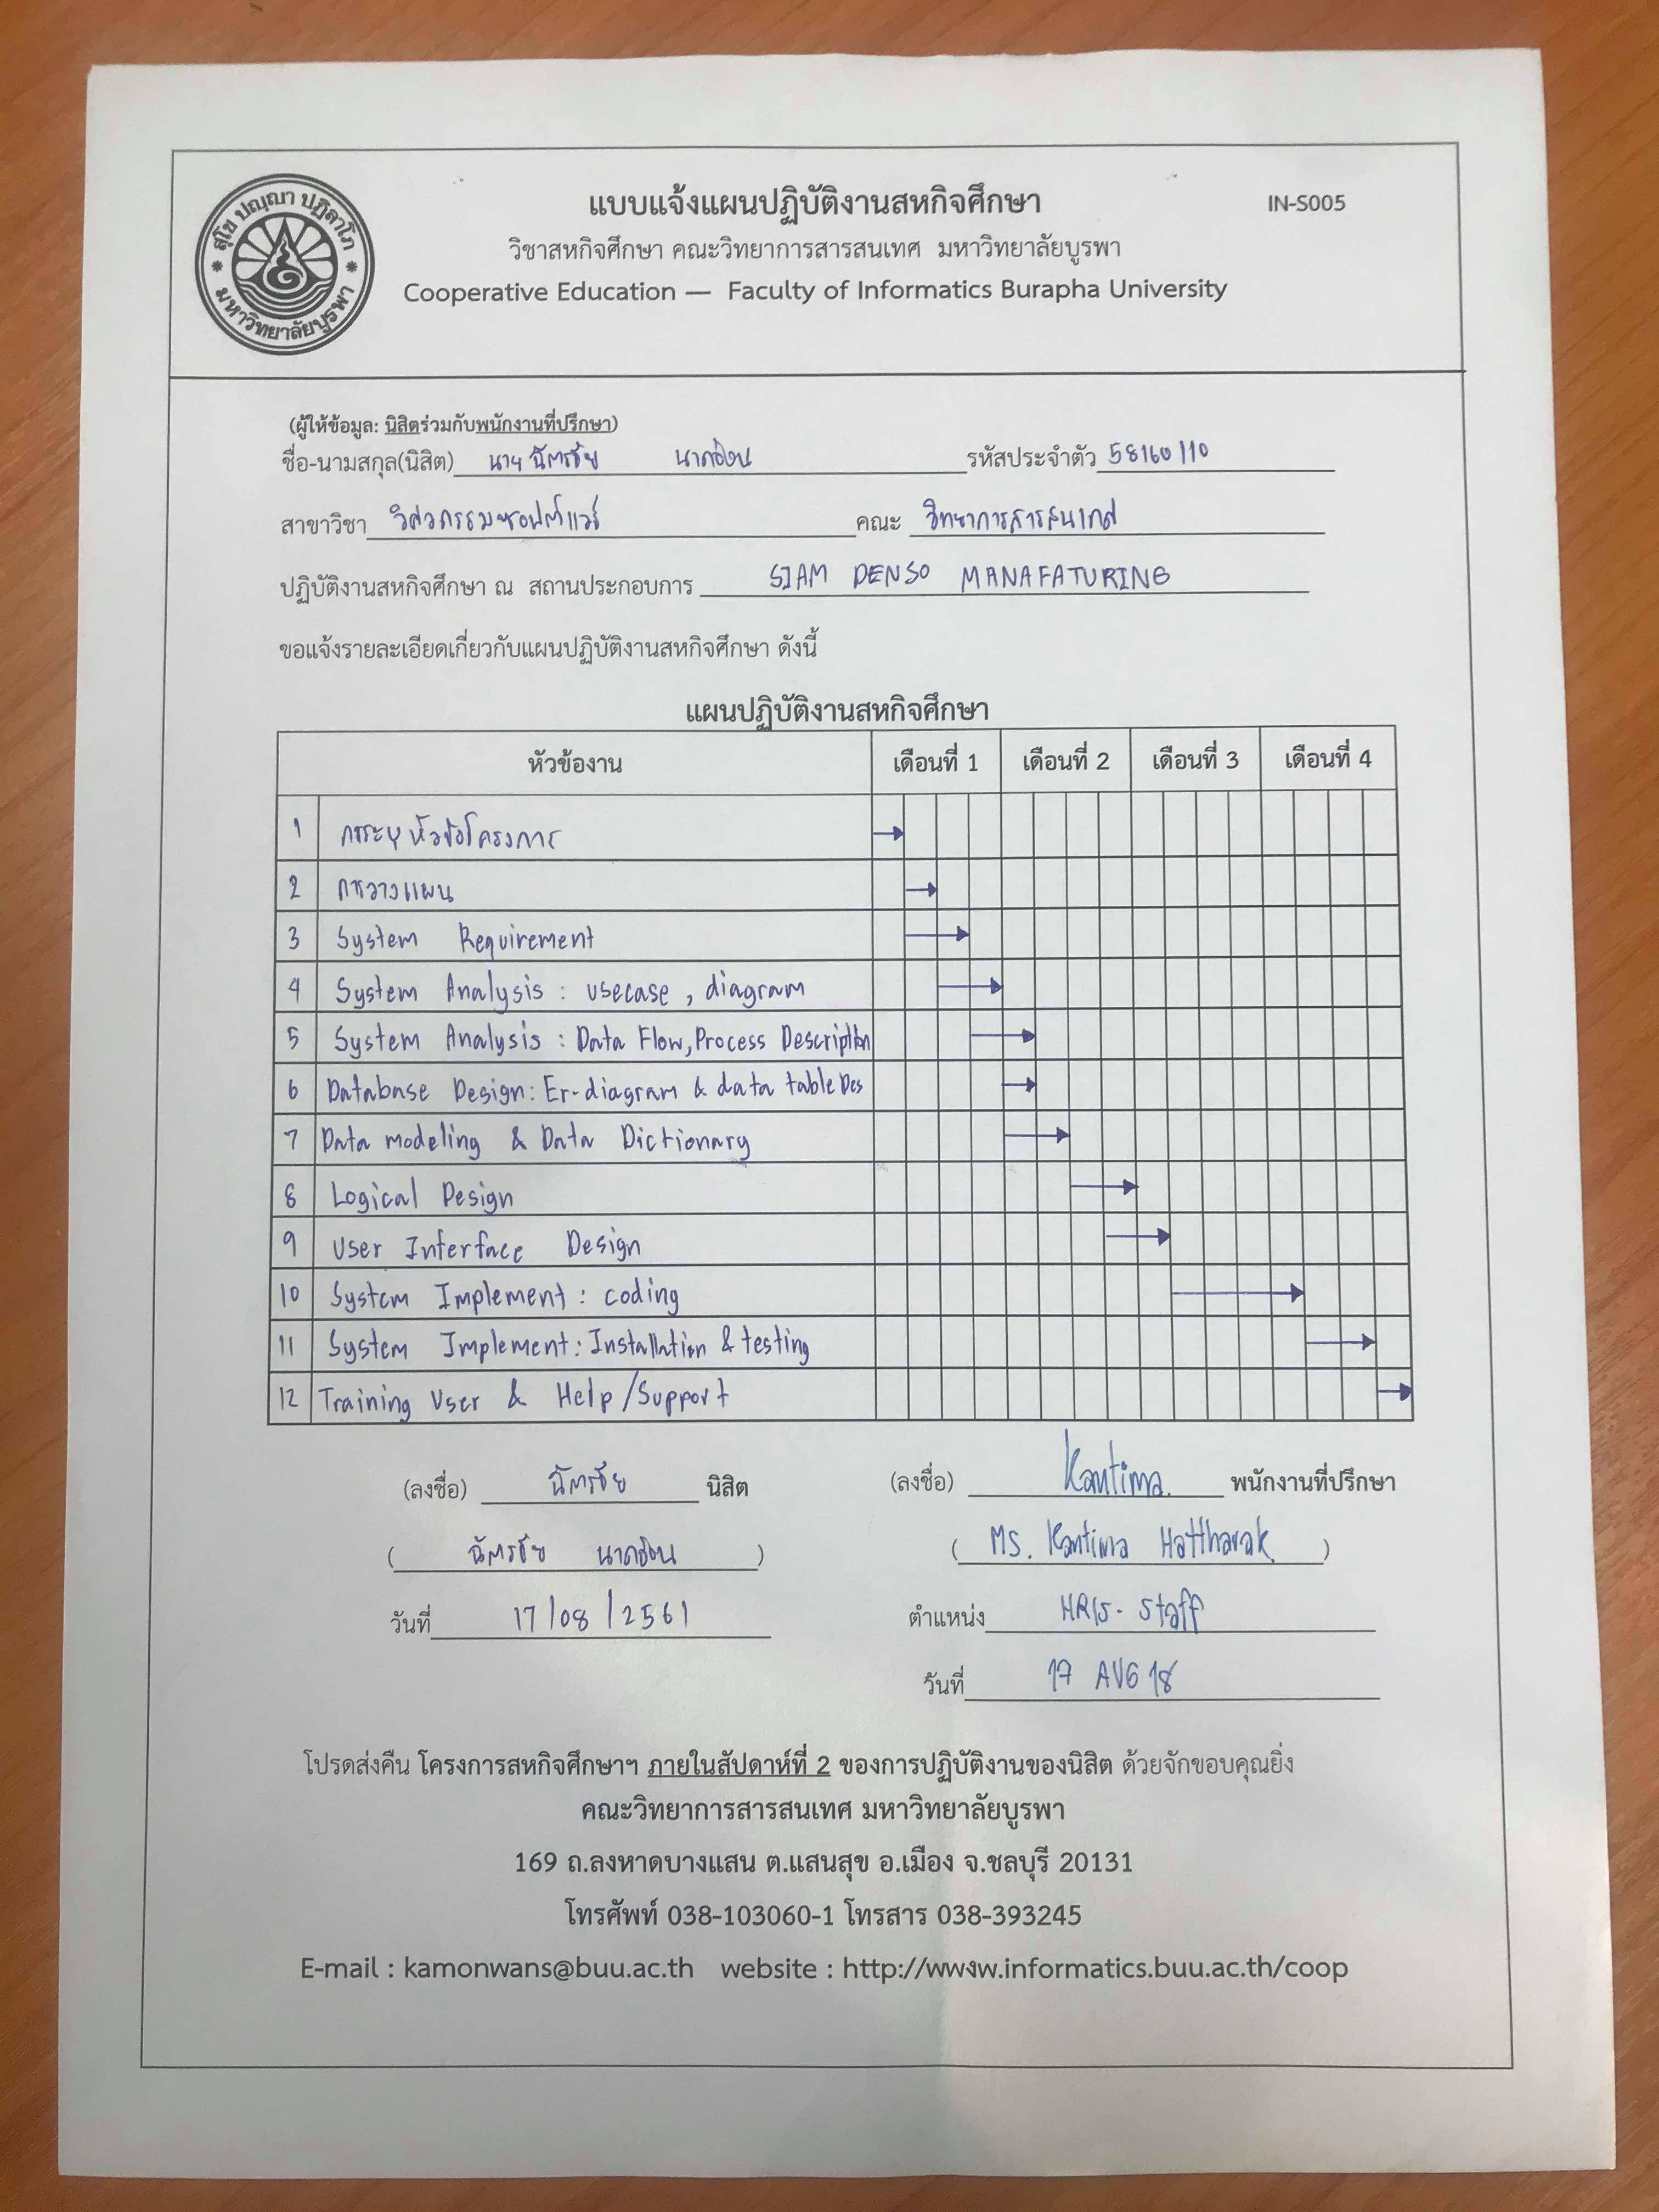 สุโข ปญฺญา ปฏิลาโภ
มหาวิทยาลัยบูรพา
แบบแจ้งแผนปฏิบัติงานสหกิจศึกษา IN-S005
วิชาสหกิจศึกษา คณะวิทยาการสารสนเทศ มหาวิทยาลัยบูรพา
Cooperative Education — Faculty of Informatics Burapha University
(ผู้ให้ข้อมูล: นิสิตร่วมกับพนักงานที่ปรึกษา)
ชื่อ-นามสกุล(นิสิต) นาย ฉัตรชัย รหัสประจำตัว 58160110
สาขาวิชา วิศวกรรมซอฟต์แวร์ คณะ วิทยาการสารสนเทศ
ปฏิบัติงานสหกิจศึกษา ณ สถานประกอบการ SIAM DENSO MANAFATURING
ขอแจ้งรายละเอียดเกี่ยวกับแผนปฏิบัติงานสหกิจศึกษา ดังนี้
แผนปฏิบัติงานสหกิจศึกษา
หัวข้องาน เดือนที่ 1 เดือนที่ 2 เดือนที่ 3 เดือนที่ 4
1 หัวข้อโครงการ
2 การวางแผน
3 System Requirement
4 System Analysis : usecase , diagram
5 System Analysis : Data Flow, Process Description
6 Database Design: Er-diagram & data table Des
7 Data modeling & Data Dictionary
8 Logical Design
9 User Interface Design
10 System Implement : coding
11 System Implement: Installation & testing
12 Training User & Help/Support
(ลงชื่อ) ฉัตรชัย นิสิต (ลงชื่อ) Kantima. พนักงานที่ปรึกษา
( ฉัตรชัย ) ( MS. Kantima Hattharak )
วันที่ 17/08/2561 ตำแหน่ง HRIS- Staff
วันที่ 17 AUG 18
โปรดส่งคืน โครงการสหกิจศึกษาฯ ภายในสัปดาห์ที่ 2 ของการปฏิบัติงานของนิสิต ด้วยจักขอบคุณยิ่ง
คณะวิทยาการสารสนเทศ มหาวิทยาลัยบูรพา
169 ถ.ลงหาดบางแสน ต.แสนสุข อ.เมือง จ.ชลบุรี 20131
โทรศัพท์ 038-103060-1 โทรสาร 038-393245
E-mail : kamonwans@buu.ac.th website : http://www.informatics.buu.ac.th/coop